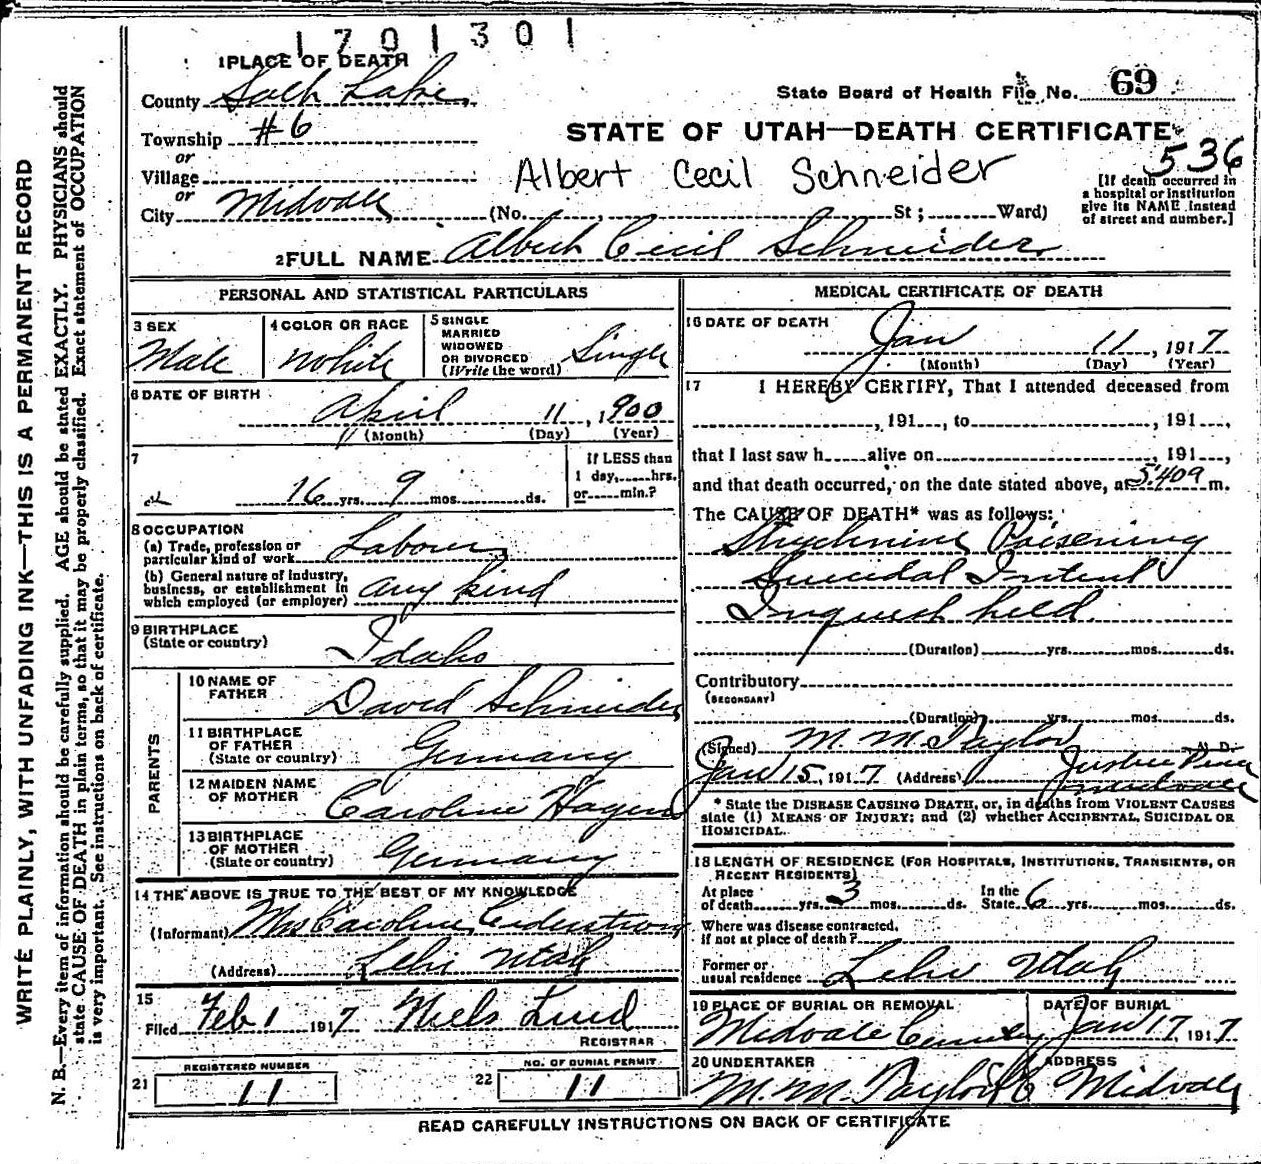 1701301
1 PLACE OF DEATH
County Salt Lake
State Board of Health File No. 69
Township #6
STATE OF UTAH—DEATH CERTIFICATE
536
or
Village
Albert Cecil Schneider
[If death occurred in
a hospital or institution
give its NAME instead
of street and number.]
or
City Midvale (No. , St; Ward)
2 FULL NAME Albert Cecil Schneider
PERSONAL AND STATISTICAL PARTICULARS
3 SEX
Male
4 COLOR OR RACE
White
5 SINGLE
MARRIED
WIDOWED
OR DIVORCED
(Write the word)
Single
6 DATE OF BIRTH
April 11, 1900
(Month) (Day) (Year)
7
16 yrs. 9 mos. ds.
If LESS than
1 day, hrs.
or min.?
8 OCCUPATION
(a) Trade, profession or
particular kind of work Laborer
(b) General nature of industry,
business, or establishment in
which employed (or employer) any kind
9 BIRTHPLACE
(State or country)
Idaho
PARENTS
10 NAME OF
FATHER
David Schneider
11 BIRTHPLACE
OF FATHER
(State or country)
Germany
12 MAIDEN NAME
OF MOTHER
Caroline Hagen
13 BIRTHPLACE
OF MOTHER
(State or country)
Germany
14 THE ABOVE IS TRUE TO THE BEST OF MY KNOWLEDGE
(Informant) Mrs Caroline Cederstrom
(Address) Lehi Utah
15
Filed Feb 1 1917 Niels Lind
REGISTRAR
REGISTERED NUMBER
21 11
NO. OF BURIAL PERMIT
22 11
MEDICAL CERTIFICATE OF DEATH
16 DATE OF DEATH
Jan 11, 1917
(Month) (Day) (Year)
17 I HEREBY CERTIFY, That I attended deceased from
, 191 , to , 191 ,
that I last saw h alive on , 191 ,
and that death occurred, on the date stated above, at m.
The CAUSE OF DEATH* was as follows:
Strychnine Poisening
Suicidal Intent
Inquest held.
(Duration) yrs. mos. ds.
Contributory
(SECONDARY)
(Duration) yrs. mos. ds.
(Signed) M. M. Taylor M. D.
Jan 15, 1917 (Address) Justice Peace
Midvale
* State the DISEASE CAUSING DEATH, or, in deaths from VIOLENT CAUSES
state (1) MEANS OF INJURY; and (2) whether ACCIDENTAL, SUICIDAL OR
HOMICIDAL.
18 LENGTH OF RESIDENCE (FOR HOSPITALS, INSTITUTIONS, TRANSIENTS, OR
RECENT RESIDENTS)
At place
of death yrs. 3 mos. ds.
In the
State 6 yrs. mos. ds.
Where was disease contracted,
if not at place of death?
Former or
usual residence Lehi Utah
19 PLACE OF BURIAL OR REMOVAL
Midvale Cemetery
DATE OF BURIAL
Jan 17, 1917
20 UNDERTAKER
M. M. Taylor
ADDRESS
Midvale
READ CAREFULLY INSTRUCTIONS ON BACK OF CERTIFICATE
WRITE PLAINLY, WITH UNFADING INK—THIS IS A PERMANENT RECORD
N. B.—Every item of information should be carefully supplied. AGE should be stated EXACTLY. PHYSICIANS should
state CAUSE OF DEATH in plain terms, so that it may be properly classified. Exact statement of OCCUPATION
is very important. See instructions on back of certificate.